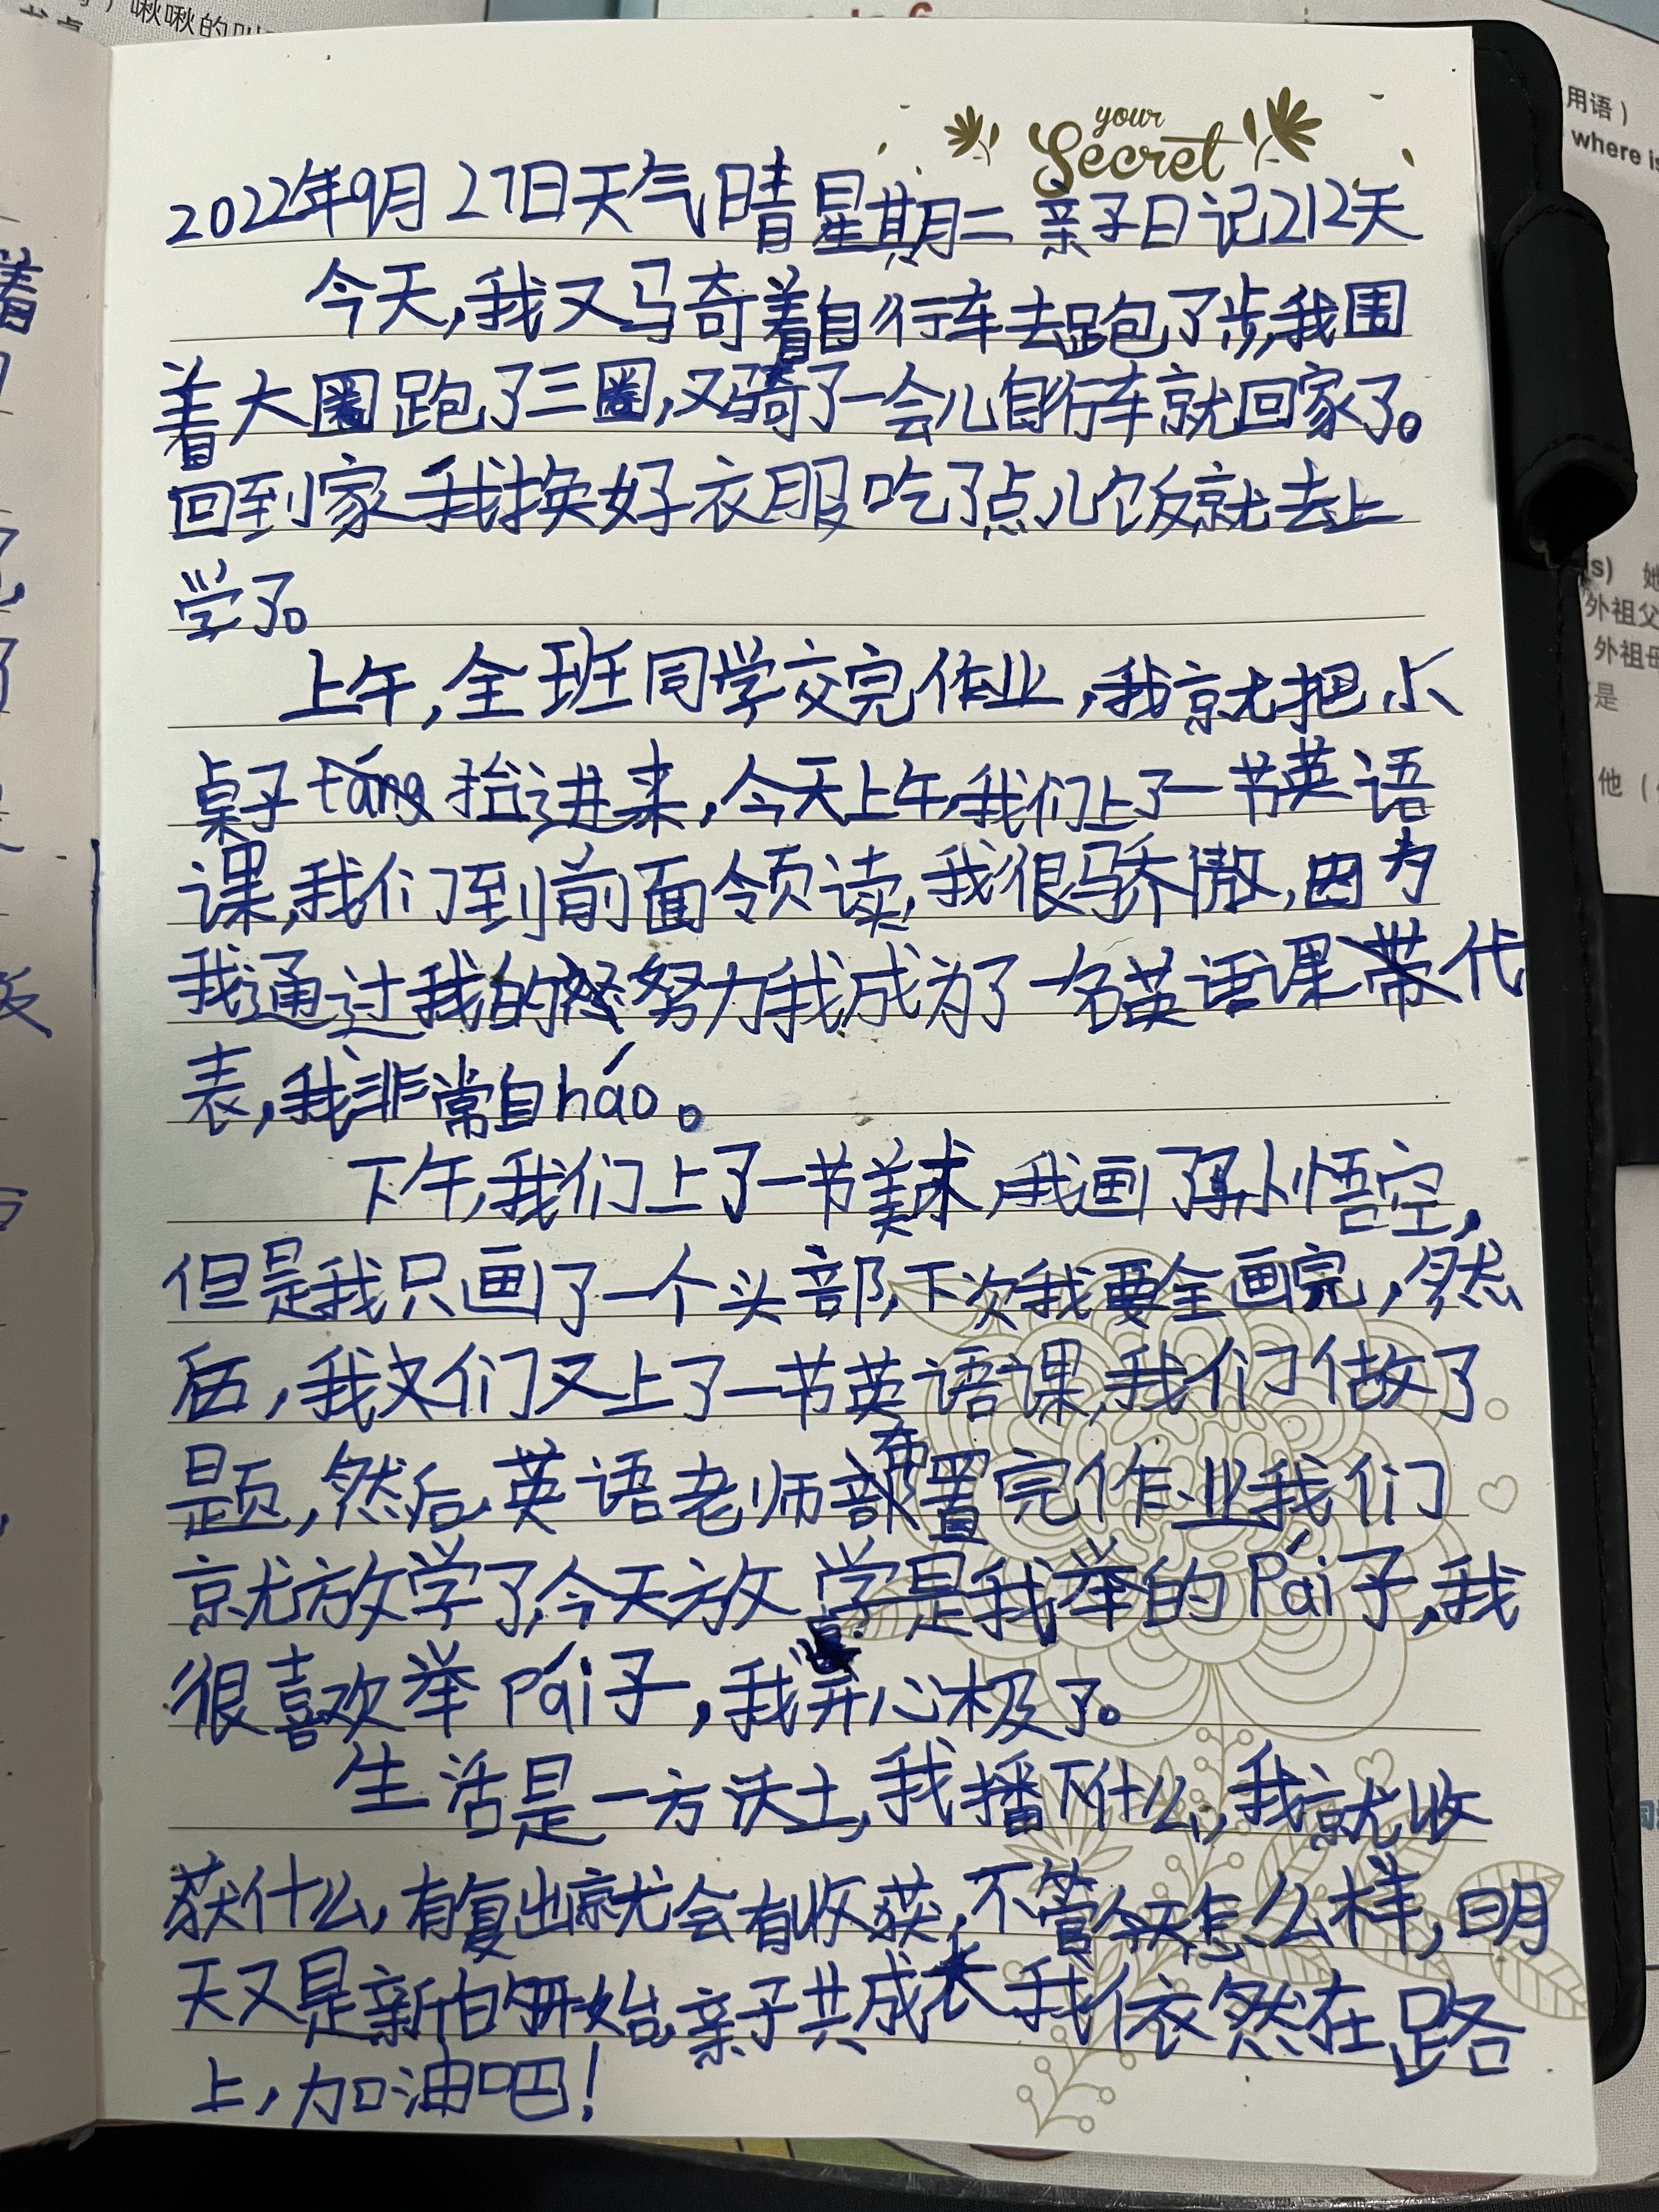 your
Secret
2022年9月27日天气晴星期二 亲子日记212天
今天,我又骑着自行车去跑了步,我围
着大圈跑了三圈,又骑了一会儿自行车就回家了。
回到家我换好衣服吃了点儿饭就去上
学了。
上午,全班同学交完作业,我就把小
桌子抬进来,今天上午,我们上了一节英语
课,我们到前面领读,我很骄傲,因为
我通过我的努力我成为了一名英语课代
表,我非常自háo。
下午,我们上了一节美术,我画了孙悟空,
但是我只画了一个头部,下次我要全画完,然
后,我们又上了一节英语课,我们做了
题,然后,英语老师布置完作业我们
就放学了,今天放学是我举的Pái子,我
很喜欢举Pái子,我开心极了。
生活是一方沃土,我播下什么,我就收
获什么,有复出就会有收获,不管今天怎么样,明
天又是新的开始,亲子共成长我依然在路
上,加油吧!
用语)
where is
(s) 她
外祖父
外祖母
是
他(
着
啾啾的叫